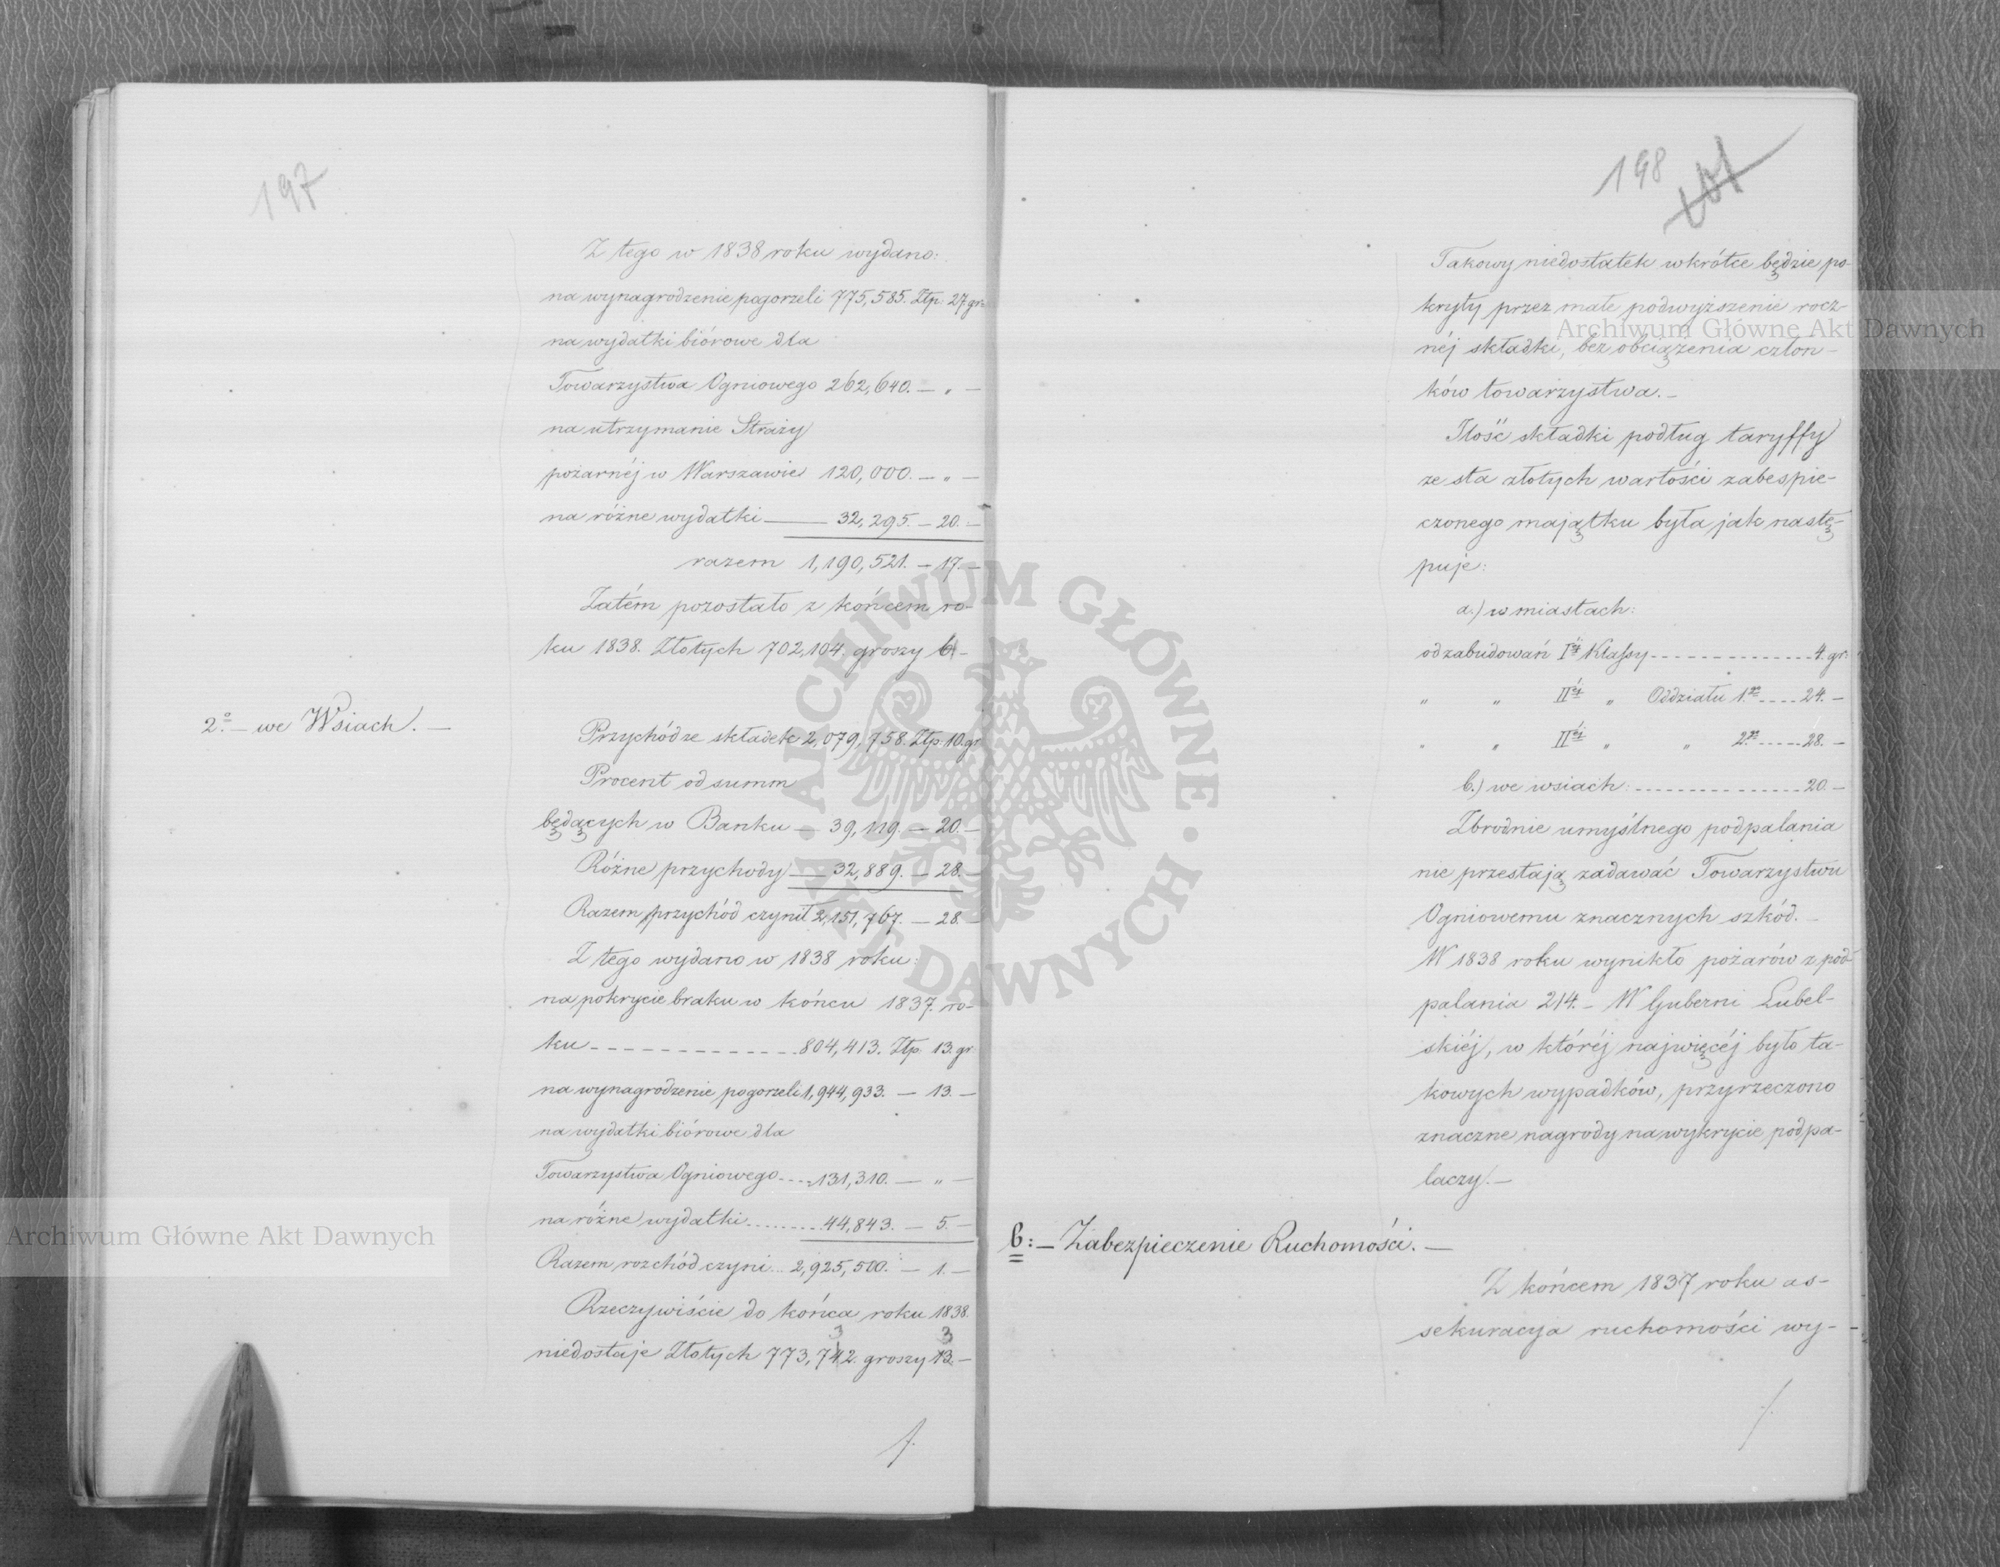 197
Z tego w 1838 roku wydano:
na wynagrodzenie pogorzeli 775,585. Złp. 27 gr.
na wydatki biórowe dla
Towarzystwa Ogniowego 262,640. — „ —
na utrzymanie Straży
pożarnéj w Warszawie 120,000. — „ —
na różne wydatki — 32,295. — 20. —
razem 1,190,521. — 17. —
Zatém pozostało z końcem ro-
ku 1838. Złotych 702,104. groszy 6 —
2o. — we Wsiach. —
Przychód ze składek 2,079,758. Złp. 10. gr
Procent od summ
będących w Banku — 39,119. — 20. —
Różne przychody — 32,889. — 28. —
Razem przychód czynił 2,151,767. — 28. —
Z tego wydano w 1838 roku:
na pokrycie braku w końcu 1837. ro-
ku - - - - - - - - - 804,413. Złp. 13. gr
na wynagrodzenie pogorzeli 1,944,933. — 13. —
na wydatki biórowe dla
Towarzystwa Ogniowego - - - - 131,310. — „ —
na różne wydatki - - - - - 44,843. — 5. —
Razem rozchód czyni - - 2,925,500. — 1. —
Rzeczywiście do końca roku 1838.
niedostaje Złotych 773,732. groszy 3. —
198
Takowy niedostatek wkrótce będzie po-
kryty przez małe podwyższenie rocz-
néj składki, bez obciążenia człon-
ków towarzystwa. —
Ilość składki podług taryffy
ze sta złotych wartości zabespie-
czonego majątku była jak nastę-
puje:
a.) w miastach:
od zabudowań Iéj Klassy - - - - - - - - - 4. gr.
„ „ IIéj „ Oddziału 1go - - - - 24. —
„ „ IIéj „ „ 2go - - - - 28. —
b.) we wsiach: - - - - - - - - - - 20. —
Zbrodnie umyślnego podpalania
nie przestają zadawać Towarzystwu
Ogniowemu znacznych szkód. —
W 1838 roku wynikło pożarów z pod-
palania 214. — W Guberni Lubel-
skiéj, w któréj najwięcéj było ta-
kowych wypadków, przyrzeczono
znaczne nagrody na wykrycie podpa-
laczy. —
6: — Zabezpieczenie Ruchomości. —
Z końcem 1837 roku as-
sekuracya ruchomości wy-
Archiwum Główne Akt Dawnych
Archiwum Główne Akt Dawnych
ARCHIWUM GŁÓWNE · AKT DAWNYCH ·